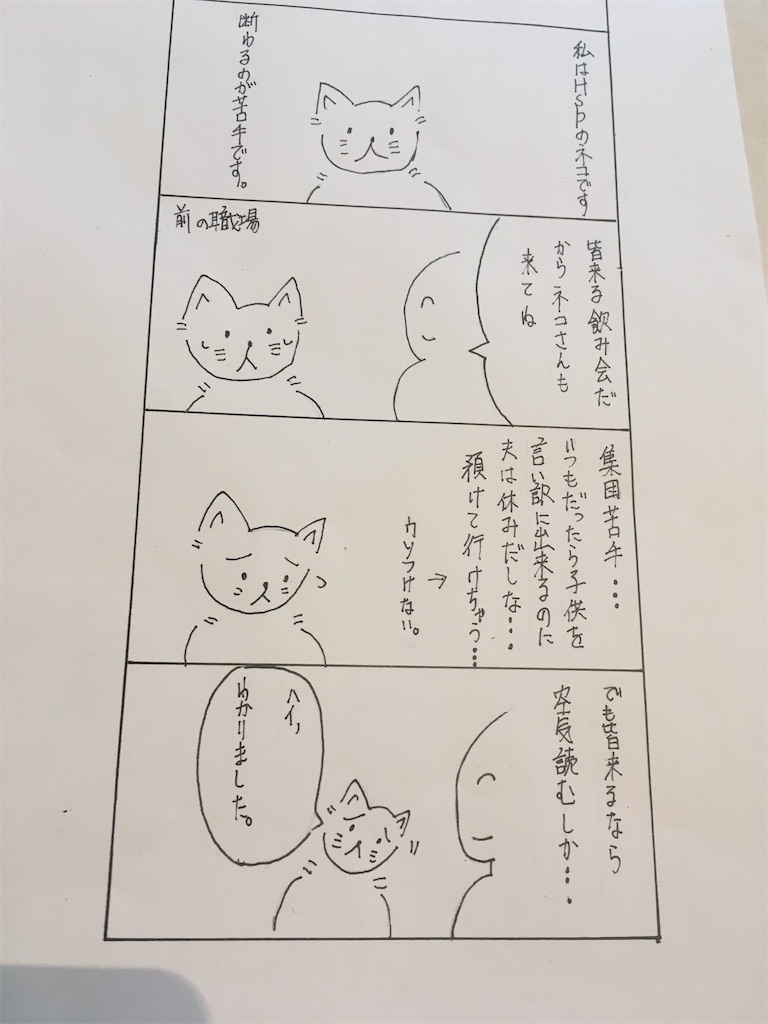 私はHSPのネコです
断わるのが苦手です。
前の職場
皆来る飲み会だ
からネコさんも
来てね
集団苦手…
いつもだったら子供を
言い訳に出来るのに
夫は休みだしな…
預けて行けちゃう…
→
ウソつけない。
でも皆来るなら
空気読むしか…
ハイ、
わかりました。